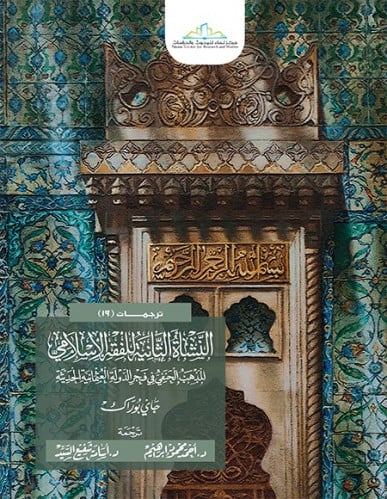 مركز نماء للبحوث والدراسات
Namaa Center for Research and Studies
بسم الله الرحمن الرحيم
ترجمات (١٩)
النشأة الثانية للفقه الإسلامي
المذهب الحنفي في فجر الدولة العثمانية الحديثة
جاي بوراك
ترجمة
د. أحمد محمود إبراهيم
د. أسامة شفيع السيد